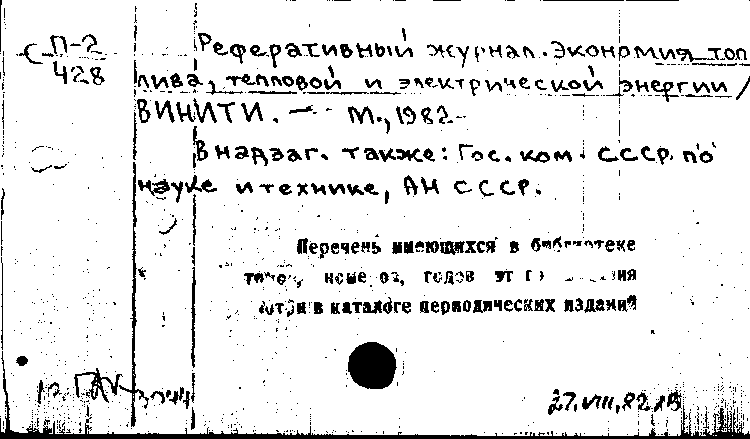 С П-2
428
Реферативный журнал. Экономия топ
лива, тепловой и электрической энергии /
ВИНИТИ. — М., 1982-
В надзаг. также: Гос. ком. СССР по
науке и технике, АН СССР.
Перечень имеющихся в библиотеке
годов
в каталоге периодических изданий
27.VIII.82